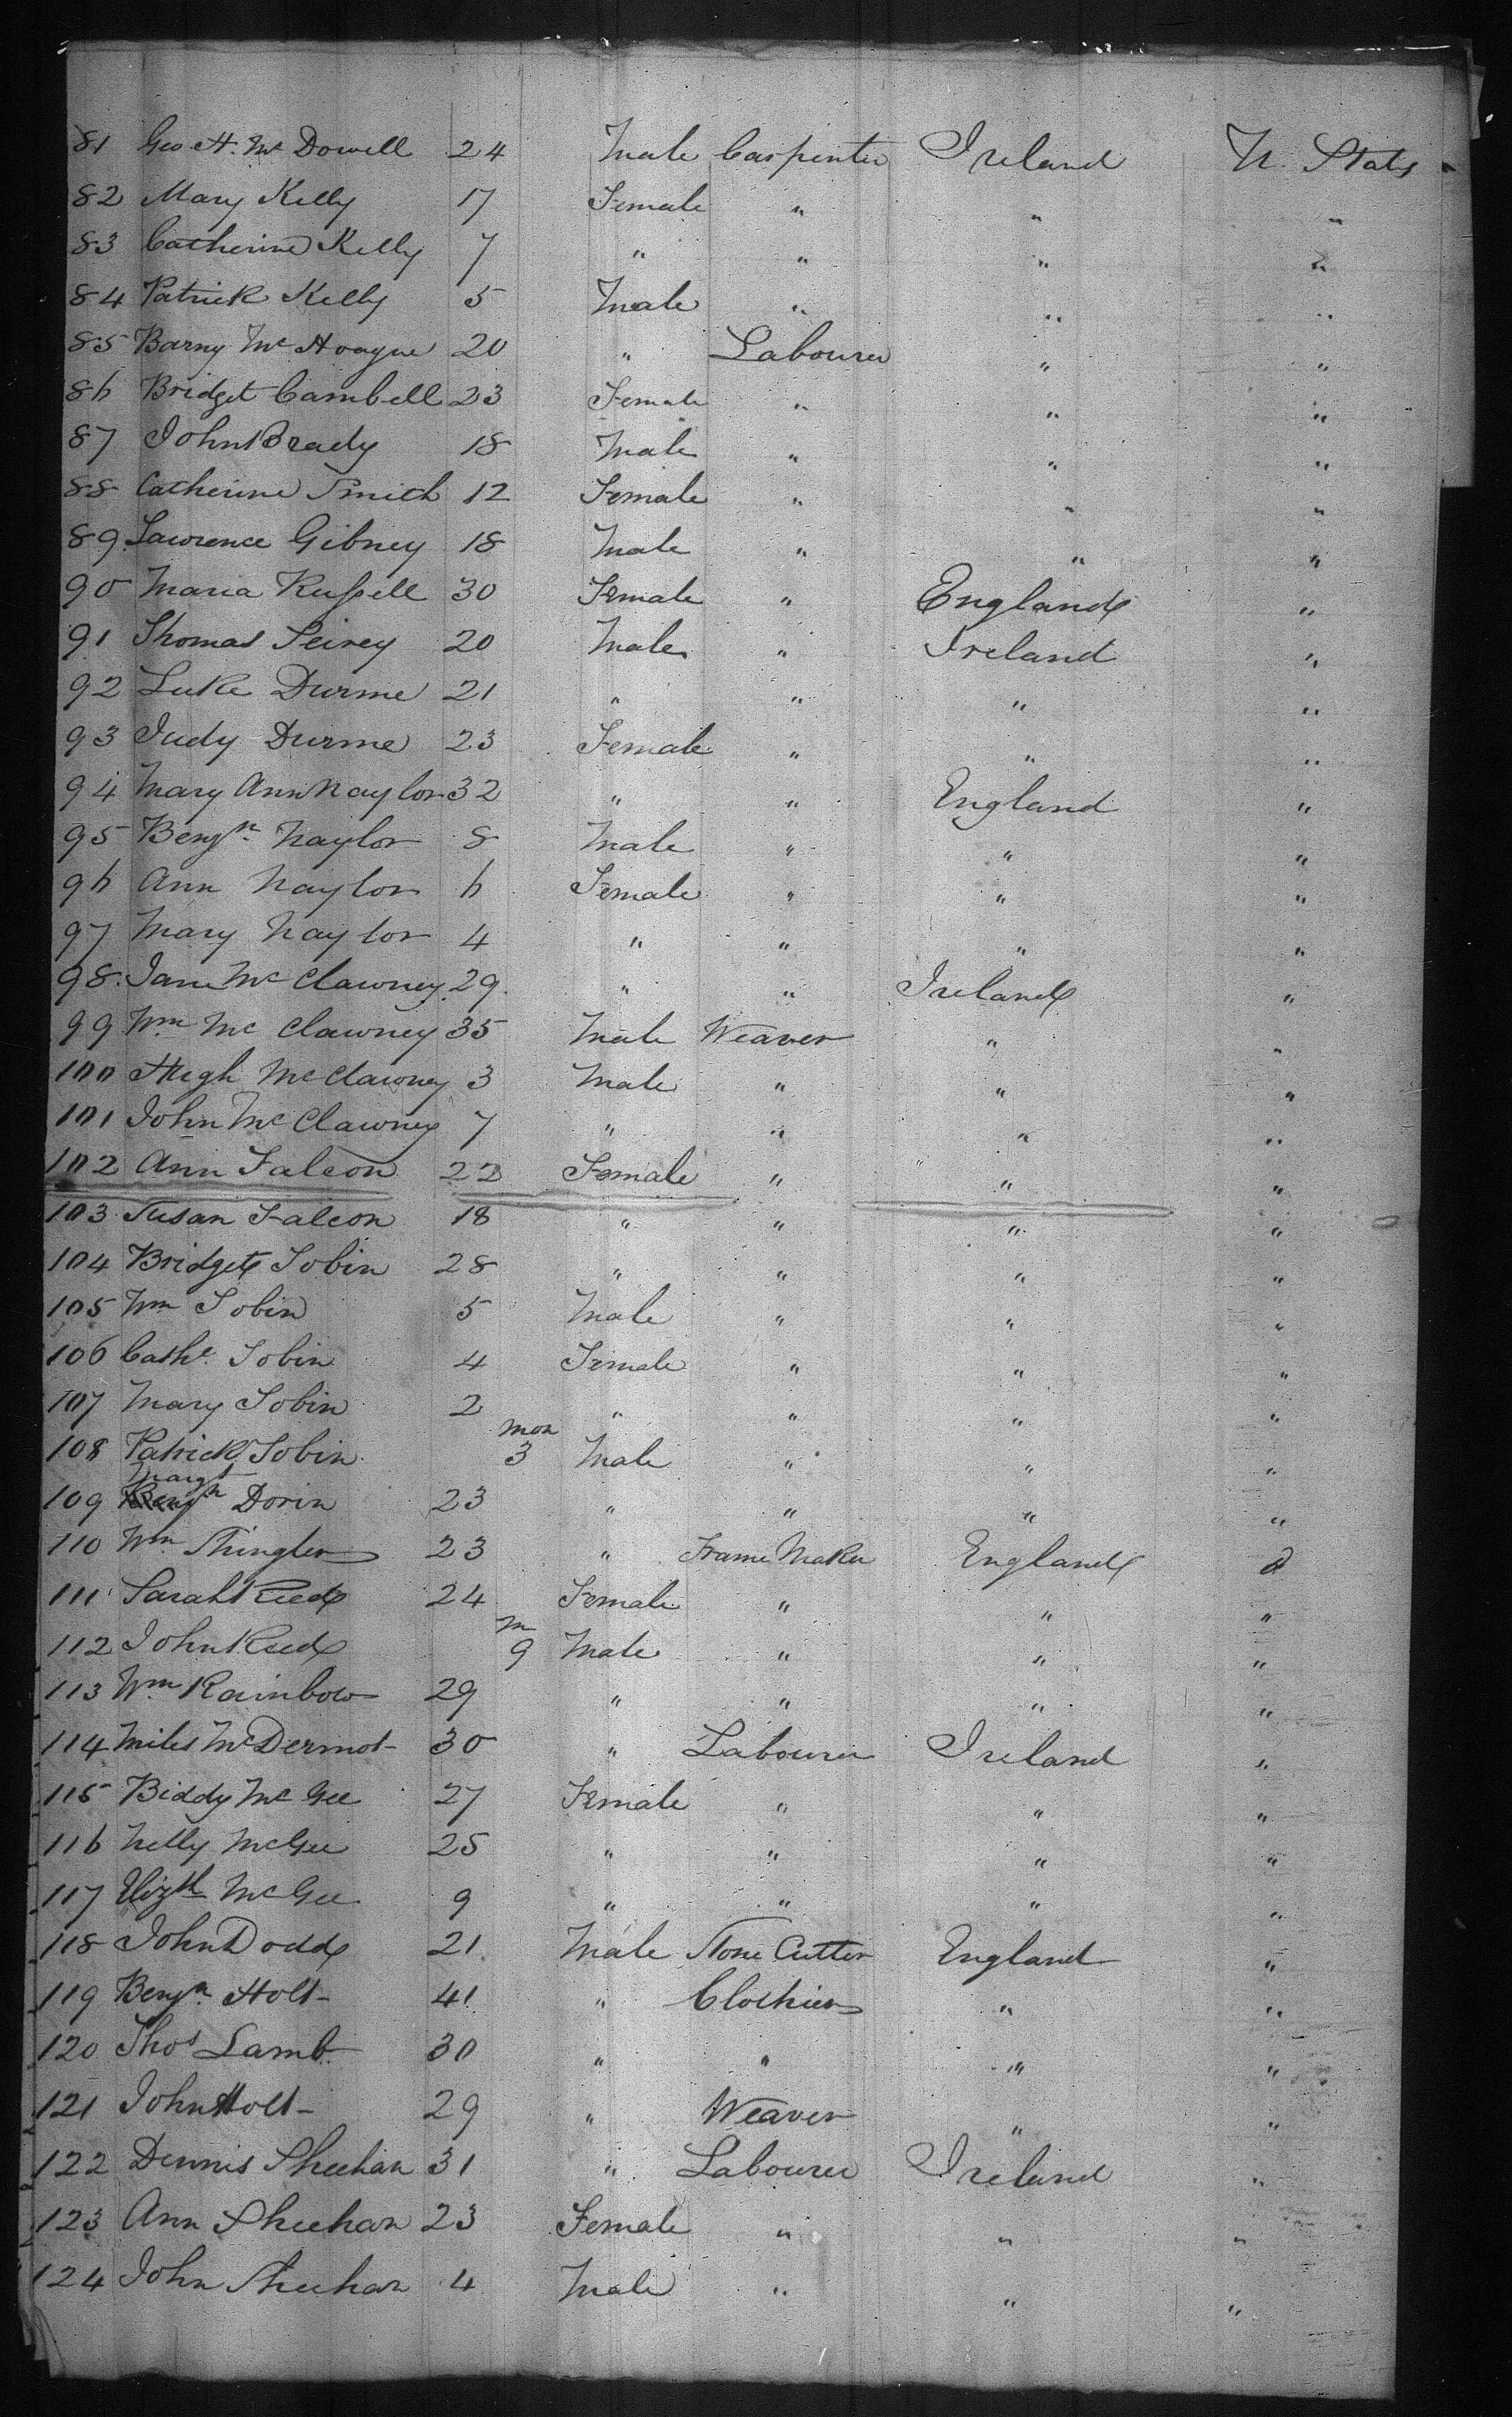 81 Geo H. Mc Dowell 24 Male Carpenter Ireland U. States
82 Mary Kelly 17 Female " " "
83 Catherine Kelly 7 " " " "
84 Patrick Kelly 5 Male " " "
85 Barny Mc Hoague 20 " Labourer " "
86 Bridget Cambell 23 Female " " "
87 John Brady 18 Male " " "
88 Catherine Smith 12 Female " " "
89 Lawrence Gibney 18 Male " " "
90 Maria Russell 30 Female " England "
91 Thomas Seirey 20 Male " Ireland "
92 Luke Durme 21 " " " "
93 Judy Durme 23 Female " " "
94 Mary Ann Naylor 32 " " England "
95 Benjn. Naylor 8 Male " " "
96 Ann Naylor 6 Female " " "
97 Mary Naylor 4 " " " "
98. Jane Mc Clawney 29 " " Ireland "
99 Wm Mc Clawney 35 Male Weaver " "
100 Hugh Mc Clawney 3 Male " " "
101 John Mc Clawney 7 " " " "
102 Ann Falcon 22 Female " " "
103 Susan Falcon 18 " " " "
104 Bridget Tobin 28 " " " "
105 Wm Tobin 5 Male " " "
106 Cathe. Tobin 4 Female " " "
107 Mary Tobin 2 " " " "
108 Patrick Tobin mon 3 Male " " "
109 Margt Dorin 23 " " " "
110 Wm Shingler 23 " Frame Maker England d
111 Sarah Reed 24 Female " " "
112 John Reed m 9 Male " " "
113 Wm Rainbow 29 " " " "
114 Miles McDermot 30 " Labourer Ireland "
115 Biddy Mc Gee 27 Female " " "
116 Nelly McGee 25 " " " "
117 Elizth McGee 9 " " " "
118 John Dodd 21 Male Stone Cutter England "
119 Benjn. Holt 41 " Clothier " "
120 Thos Lamb 30 " " " "
121 John Holt 29 " Weaver " "
122 Dennis Sheehan 31 " Labourer Ireland "
123 Ann Sheehan 23 Female " " "
124 John Sheehan 4 Male " " "